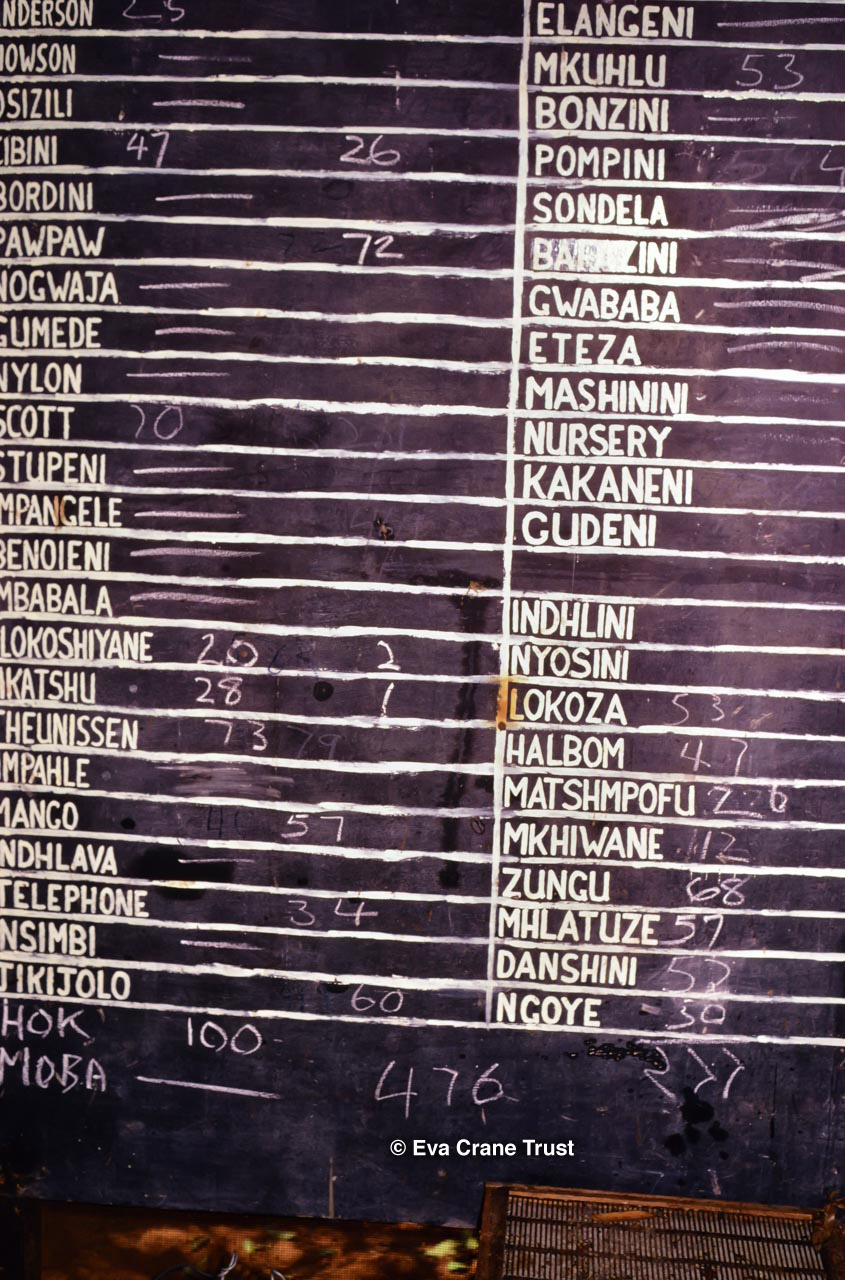 NDERSON 25
HOWSON
OSIZILI
CIBINI 47 26
BORDINI
PAWPAW 72
NOGWAJA
GUMEDE
NYLON
SCOTT 70
STUPENI
MPANGELE
BENOIENI
MBABALA
LOKOSHIYANE 20 2
KATSHU 28 1
THEUNISSEN 73 79
MPAHLE
MANGO 57
NDHLAVA
TELEPHONE 34
NSIMBI
JIKIJOLO 60
HOK 100
MOBA 476
ELANGENI
MKUHLU 53
BONZINI
POMPINI
SONDELA
GWABABA
ETEZA
MASHININI
NURSERY
KAKANENI
GUDENI
INDHLINI
NYOSINI
LOKOZA 53
HALBOM 47
MATSHMPOFU 226
MKHIWANE 112
ZUNGU 68
MHLATUZE 57
DANSHINI 52
NGOYE 30
© Eva Crane Trust